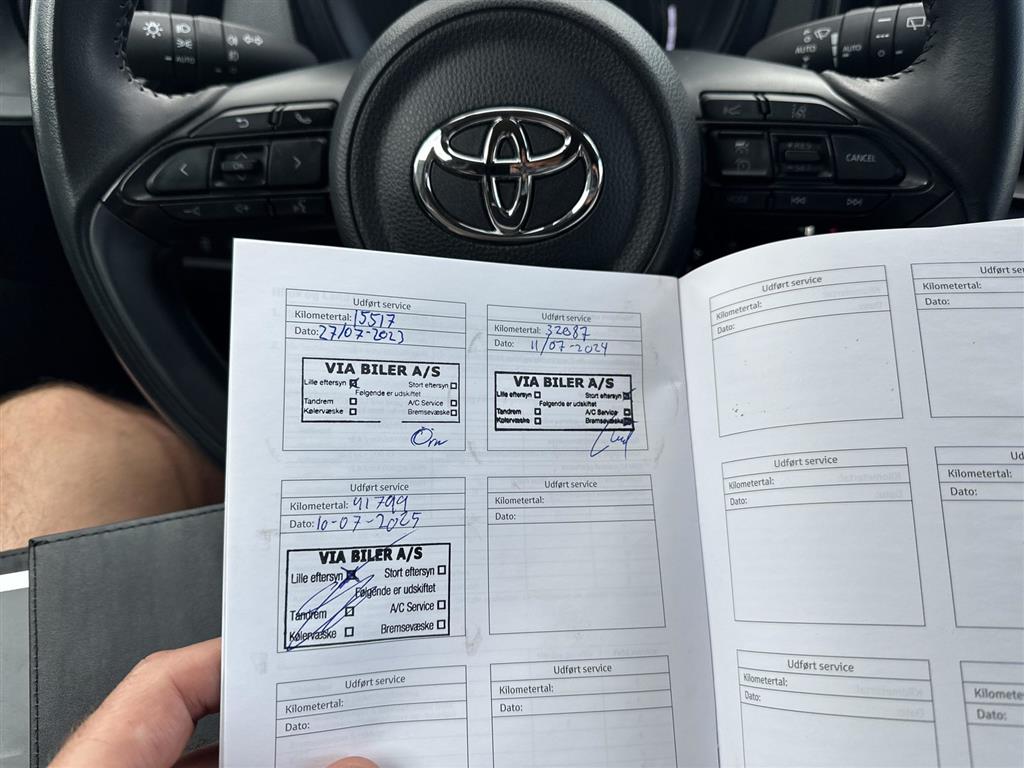 AUTO
AUTO
CANCEL
MODE
Udført service
Kilometertal: 15517
Dato: 27/07-2023
VIA BILER A/S
Lille eftersyn Stort eftersyn
Følgende er udskiftet
Tandrem A/C Service
Kølervæske Bremsevæske
Udført service
Kilometertal: 32087
Dato: 11/07-2024
VIA BILER A/S
Lille eftersyn Stort eftersyn
Følgende er udskiftet
Tandrem A/C Service
Kølervæske Bremsevæske
Udført service
Kilometertal: 41799
Dato: 10-07-2025
VIA BILER A/S
Lille eftersyn Stort eftersyn
Følgende er udskiftet
Tandrem A/C Service
Kølervæske Bremsevæske
Udført service
Kilometertal:
Dato:
Udført service
Kilometertal:
Dato:
Udført service
Kilometertal:
Dato:
Udført service
Kilometertal:
Dato:
Udført ser
Kilometertal:
Dato:
Udført service
Kilometertal:
Dato:
Ud
Kilometertal:
Dato:
Udført service
Kilometertal:
Dato:
Kilometer
Dato: